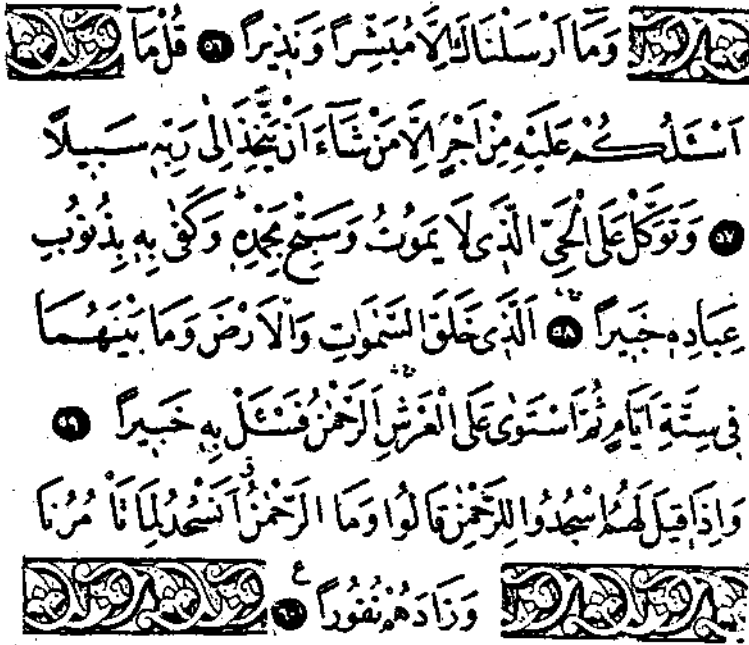 وَمَٓا اَرْسَلْنَاكَ اِلَّا مُبَشِّرًا وَنَذ۪يرًا ﴿٥٦﴾ قُلْ مَٓا
اَسْـَٔلُكُمْ عَلَيْهِ مِنْ اَجْرٍ اِلَّا مَنْ شَٓاءَ اَنْ يَتَّخِذَ اِلٰى رَبِّه۪ سَب۪يلًا
﴿٥٧﴾ وَتَوَكَّلْ عَلَى الْحَيِّ الَّذ۪ى لَا يَمُوتُ وَسَبِّحْ بِحَمْدِه۪ۜ وَكَفٰى بِه۪ بِذُنُوبِ
عِبَادِه۪ خَب۪يرًاۚ ﴿٥٨﴾ اَلَّذ۪ى خَلَقَ السَّمٰوَاتِ وَالْاَرْضَ وَمَا بَيْنَهُمَا
ف۪ى سِتَّةِ اَيَّامٍ ثُمَّ اسْتَوٰى عَلَى الْعَرْشِۚ اَلرَّحْمٰنُ فَسْـَٔلْ بِه۪ خَب۪يرًا ﴿٥٩﴾
وَاِذَا ق۪يلَ لَهُمُ اسْجُدُوا لِلرَّحْمٰنِ قَالُوا وَمَا الرَّحْمٰنُۗ اَنَسْجُدُ لِمَا تَأْمُرُنَا
وَزَادَهُمْ نُفُورًا ﴿٦٠﴾ ع